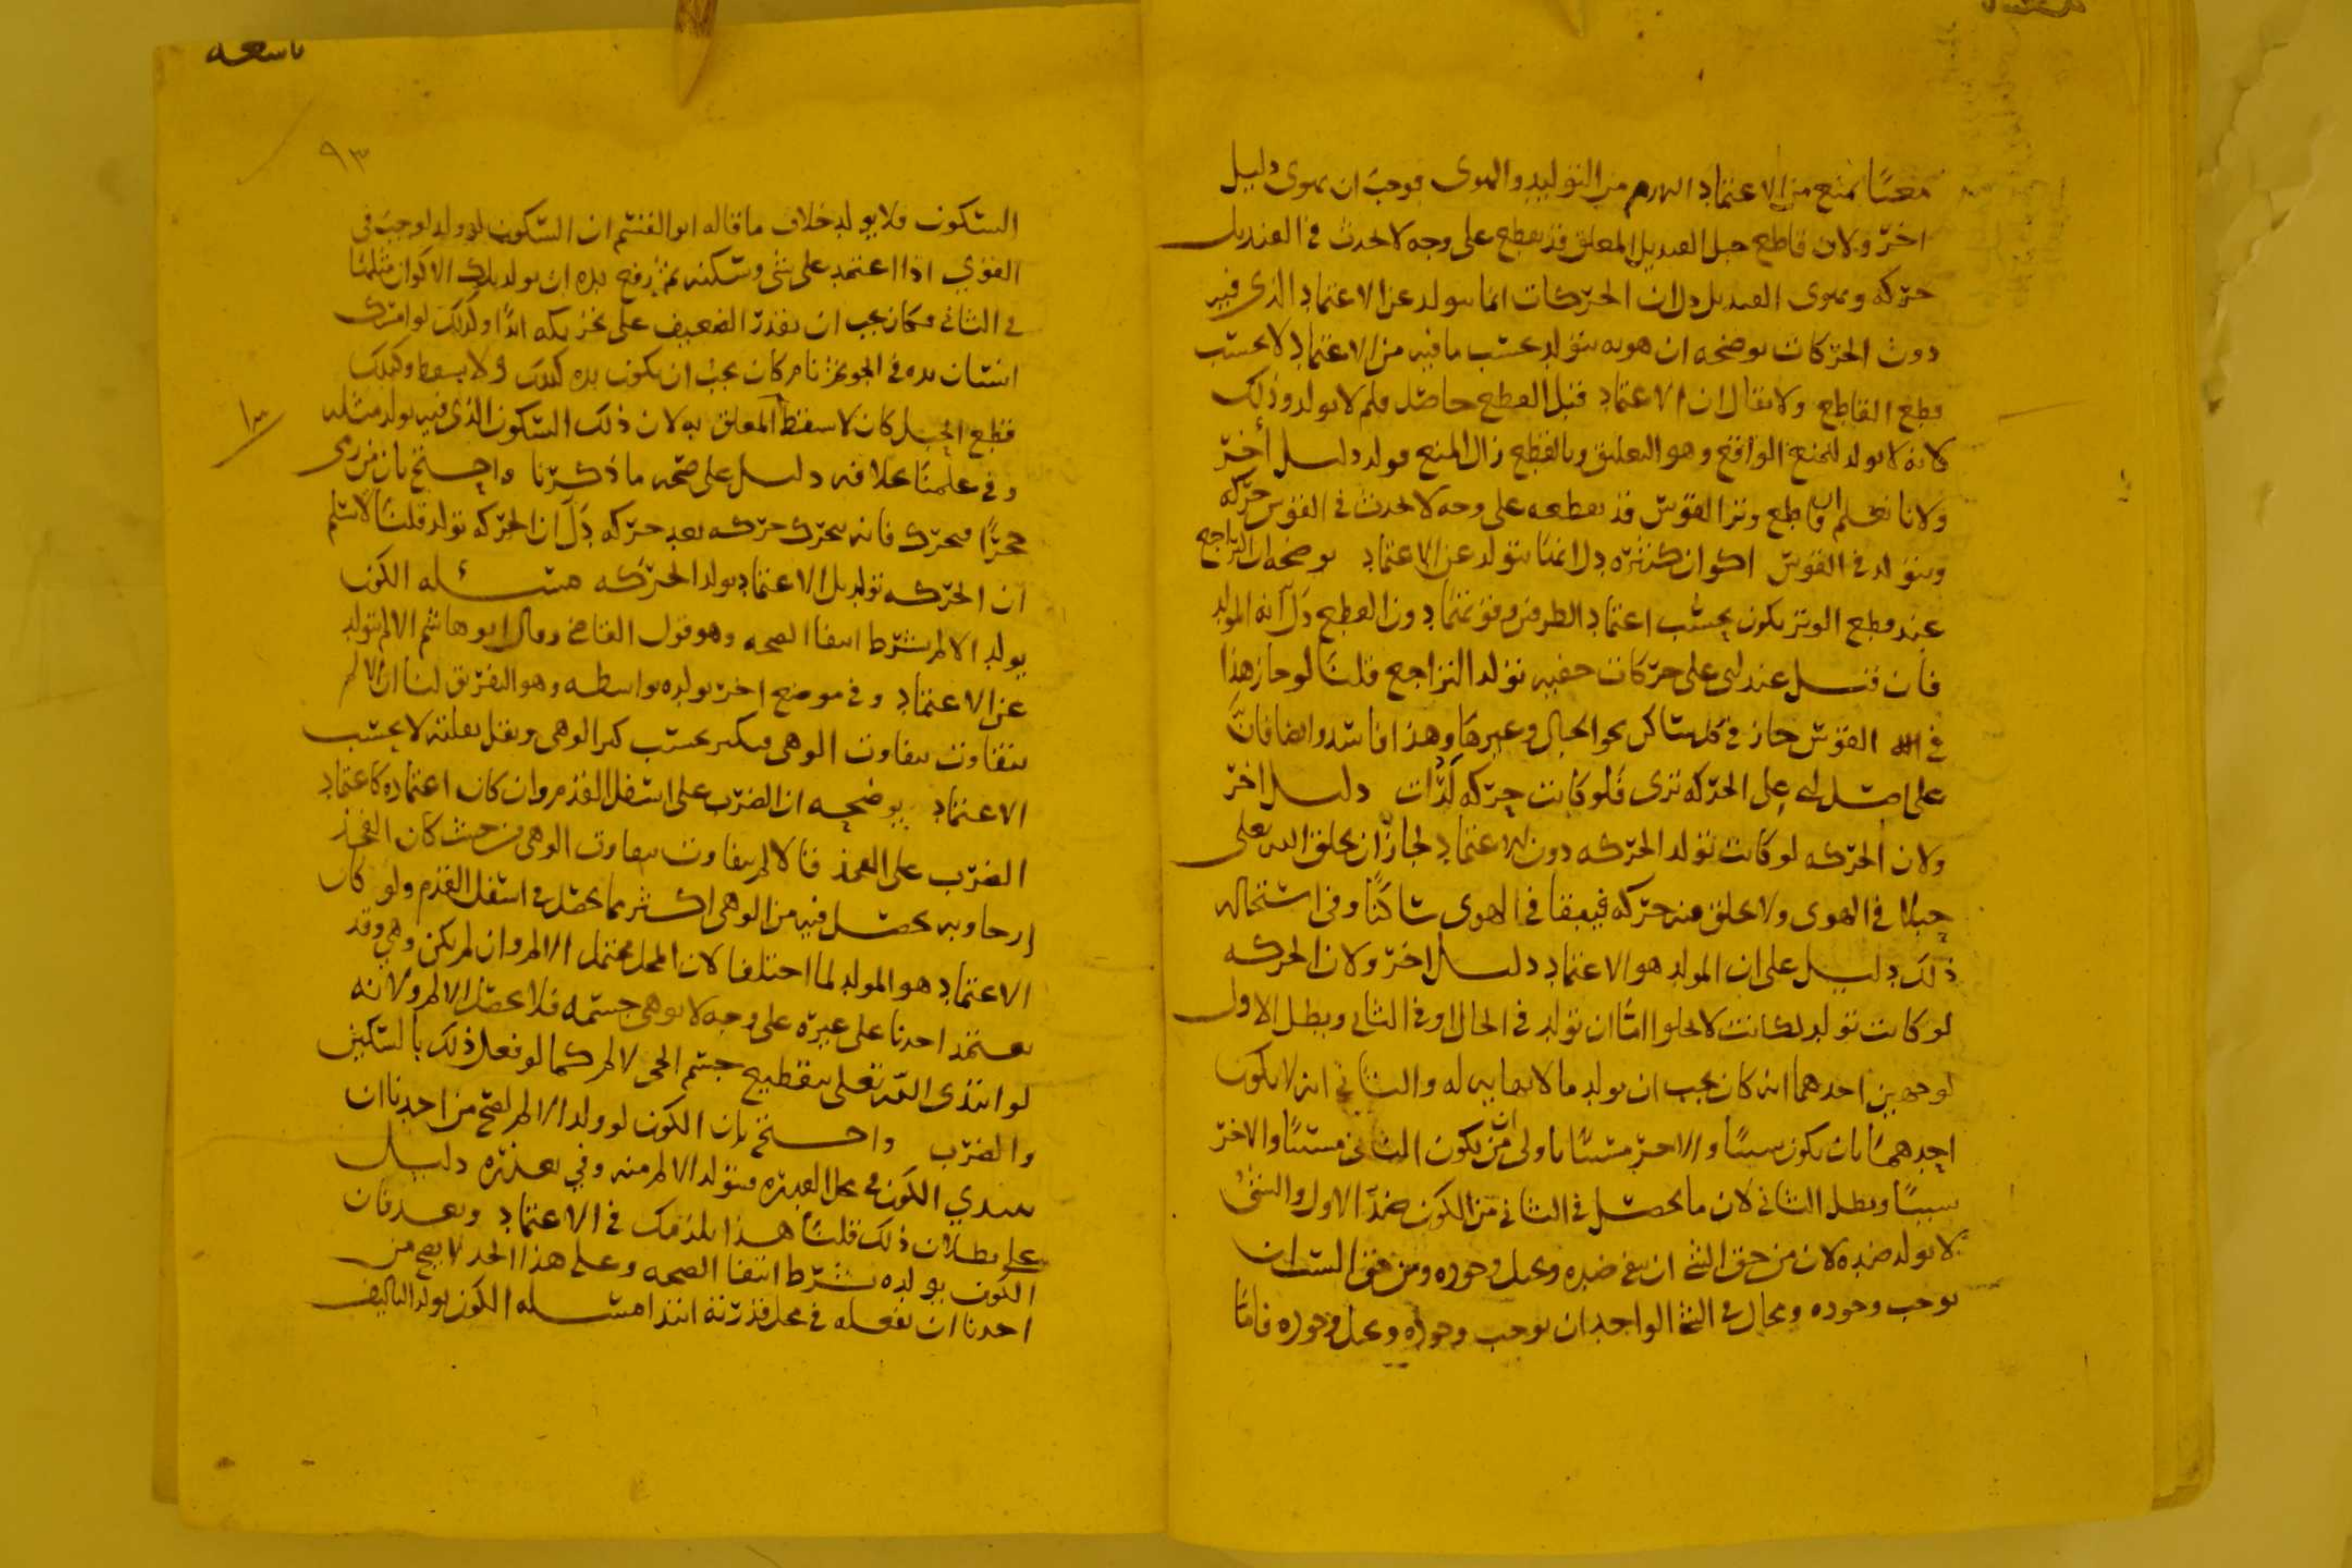 معنًا يمنع من الاعتماد اللازم من التوليد والهوى فوجب ان يهوى دليل
اخر ولان قاطع حبل القنديل المعلق قد يقطع على وجه لا يحدث في القنديل
حركه ويهوى القنديل دل ان الحركات انما تتولد عن الاعتماد الذي فيه
دون الحركات يوضحه ان هويه يتولد بحسب ما فيه من الاعتماد لا بحسب
قطع القاطع ولا يقال ان الاعتماد قبل القطع حاصل فلم لا يولد وذلك
لانه لا يولد لمنع الواقع وهو التعليق وبالقطع زال المنع فولد دليل أخر
ولانا نعلم ان قاطع وتر القوس قد يقطعه على وجه لا يحدث في القوس حركه
ويتولد في القوس اكوان كثيره دل انها تتولد عن الاعتماد يوضحه ان التراجع
عند قطع الوتر يكون بحسب اعتماد الطرفين دون القطع دل أنه المولد
فان قيل عندي على حركات خفيه تولد التراجع قلنا لو جاز هذا
في القوس جاز في كل ساكن نحو الجبال وغيرها وهذا فاسد وايضا فان
على اصل ابي على الحركه ترى فلو كانت حركه لرأت دليل اخر
ولان الحركه لو كانت تولد الحركه دون الاعتماد لجاز ان يخلق الله تعلى
جبلًا في الهوى ولا يخلق فيه حركه فيبقا في الهوى ساكنًا وفي استحاله
ذلك دليل على ان المولد هو الاعتماد دليل اخر ولان الحركه
لو كانت تولد لكانت لا يخلوا امّا ان تولد في الحال او في الثاني ويطل الاول
لوجهين احدهما انه كان يجب ان يولد ما لا نهايه له والثاني انه لا يكون
احدهما بان يكون سببًا والاخر مسببًا باولى من ان يكون الثاني مسببًا والاخر
سببًا ويطل الثاني لان ما يحصل في الثاني من الكون ضدّ الاول والشئ
لا يولد ضده لان من حق الشئ ان ينفي ضده ويحيل وجوده ومن حق السبب ان
يوجب وجوده ومحال في الشئ الواحد ان يوجب وجوده ويحيل وجوده فامّا
تاسعه
٩٣
السكون فلا يولد خلاف ما قاله ابو القسم ان السكون لو ولد لوجب في
القوي اذا اعتمد على شئ وسكنه ثم رفع يده ان يولد تلك الاكوان مثلها
في الثاني فكان يجب ان يقدر الضعيف على تحريكه ابدًا ولذلك لو امسك
انسان يده في الجو ثم نام كان يجب ان يكون يده كذلك ولا يسقط وكذلك
قطع الحبل كان لا يسقط المعلق به لان ذلك السكون الذي فيه يولد مثله
وفي علمنا بخلافه دليل على صحه ما ذكرنا واحتج بان من رمى
حجرًا فتحرك فانه يتحرك حركه بعد حركه دَلّ ان الحركه تولد قلنا لا نسلم
ان الحركه تولد بل الاعتماد يولد الحركه مسئله الكون
يولد الالم بشرط انتفا الصحه وهو قول القاضي وقال ابو هاشم الالم يتولد
عن الاعتماد وفي موضع اخر يولده بواسطه وهو التفريق لنا ان الالم
يتفاوت بتفاوت الوهي فيكبر بحسب كبر الوهي ويقل بقلته لا بحسب
الاعتماد يوضحه ان الضرب على اسفل القدم وان كان اعتماده كاعتماد
الضرب على الفخذ فالالم يتفاوت بتفاوت الوهي من حيث كان الفخذ
لرخاوته يحصل فيه من الوهي اكثر مما يحصل في اسفل القدم ولو كان
الاعتماد هو المولد لما اختلفا لان المحل محتمل الالم وان لم يكن وهي وقد
يعتمد احدنا على غيره على وجه لا يوهي جسمه فلا يحصل الالم ولانه
لو ابتدى الله تعلى بتقطيع جسم الحي لالم كما لو فعل ذلك بالسكين
والضرب واحتج بان الكون لو ولد الالم لصح من احدنا ان
يبتدي الكون في محل القدره فيتولد الالم منه وفي تعذره دليل
على بطلان ذلك قلنا هذا يلزمك في الاعتماد وبعد فان
الكون يولده بشرط انتفا الصحه وعلى هذا الحد لا يصح من
احدنا ان يفعله في محل قدرته ابتدا مسئله الكون يولد التاليف